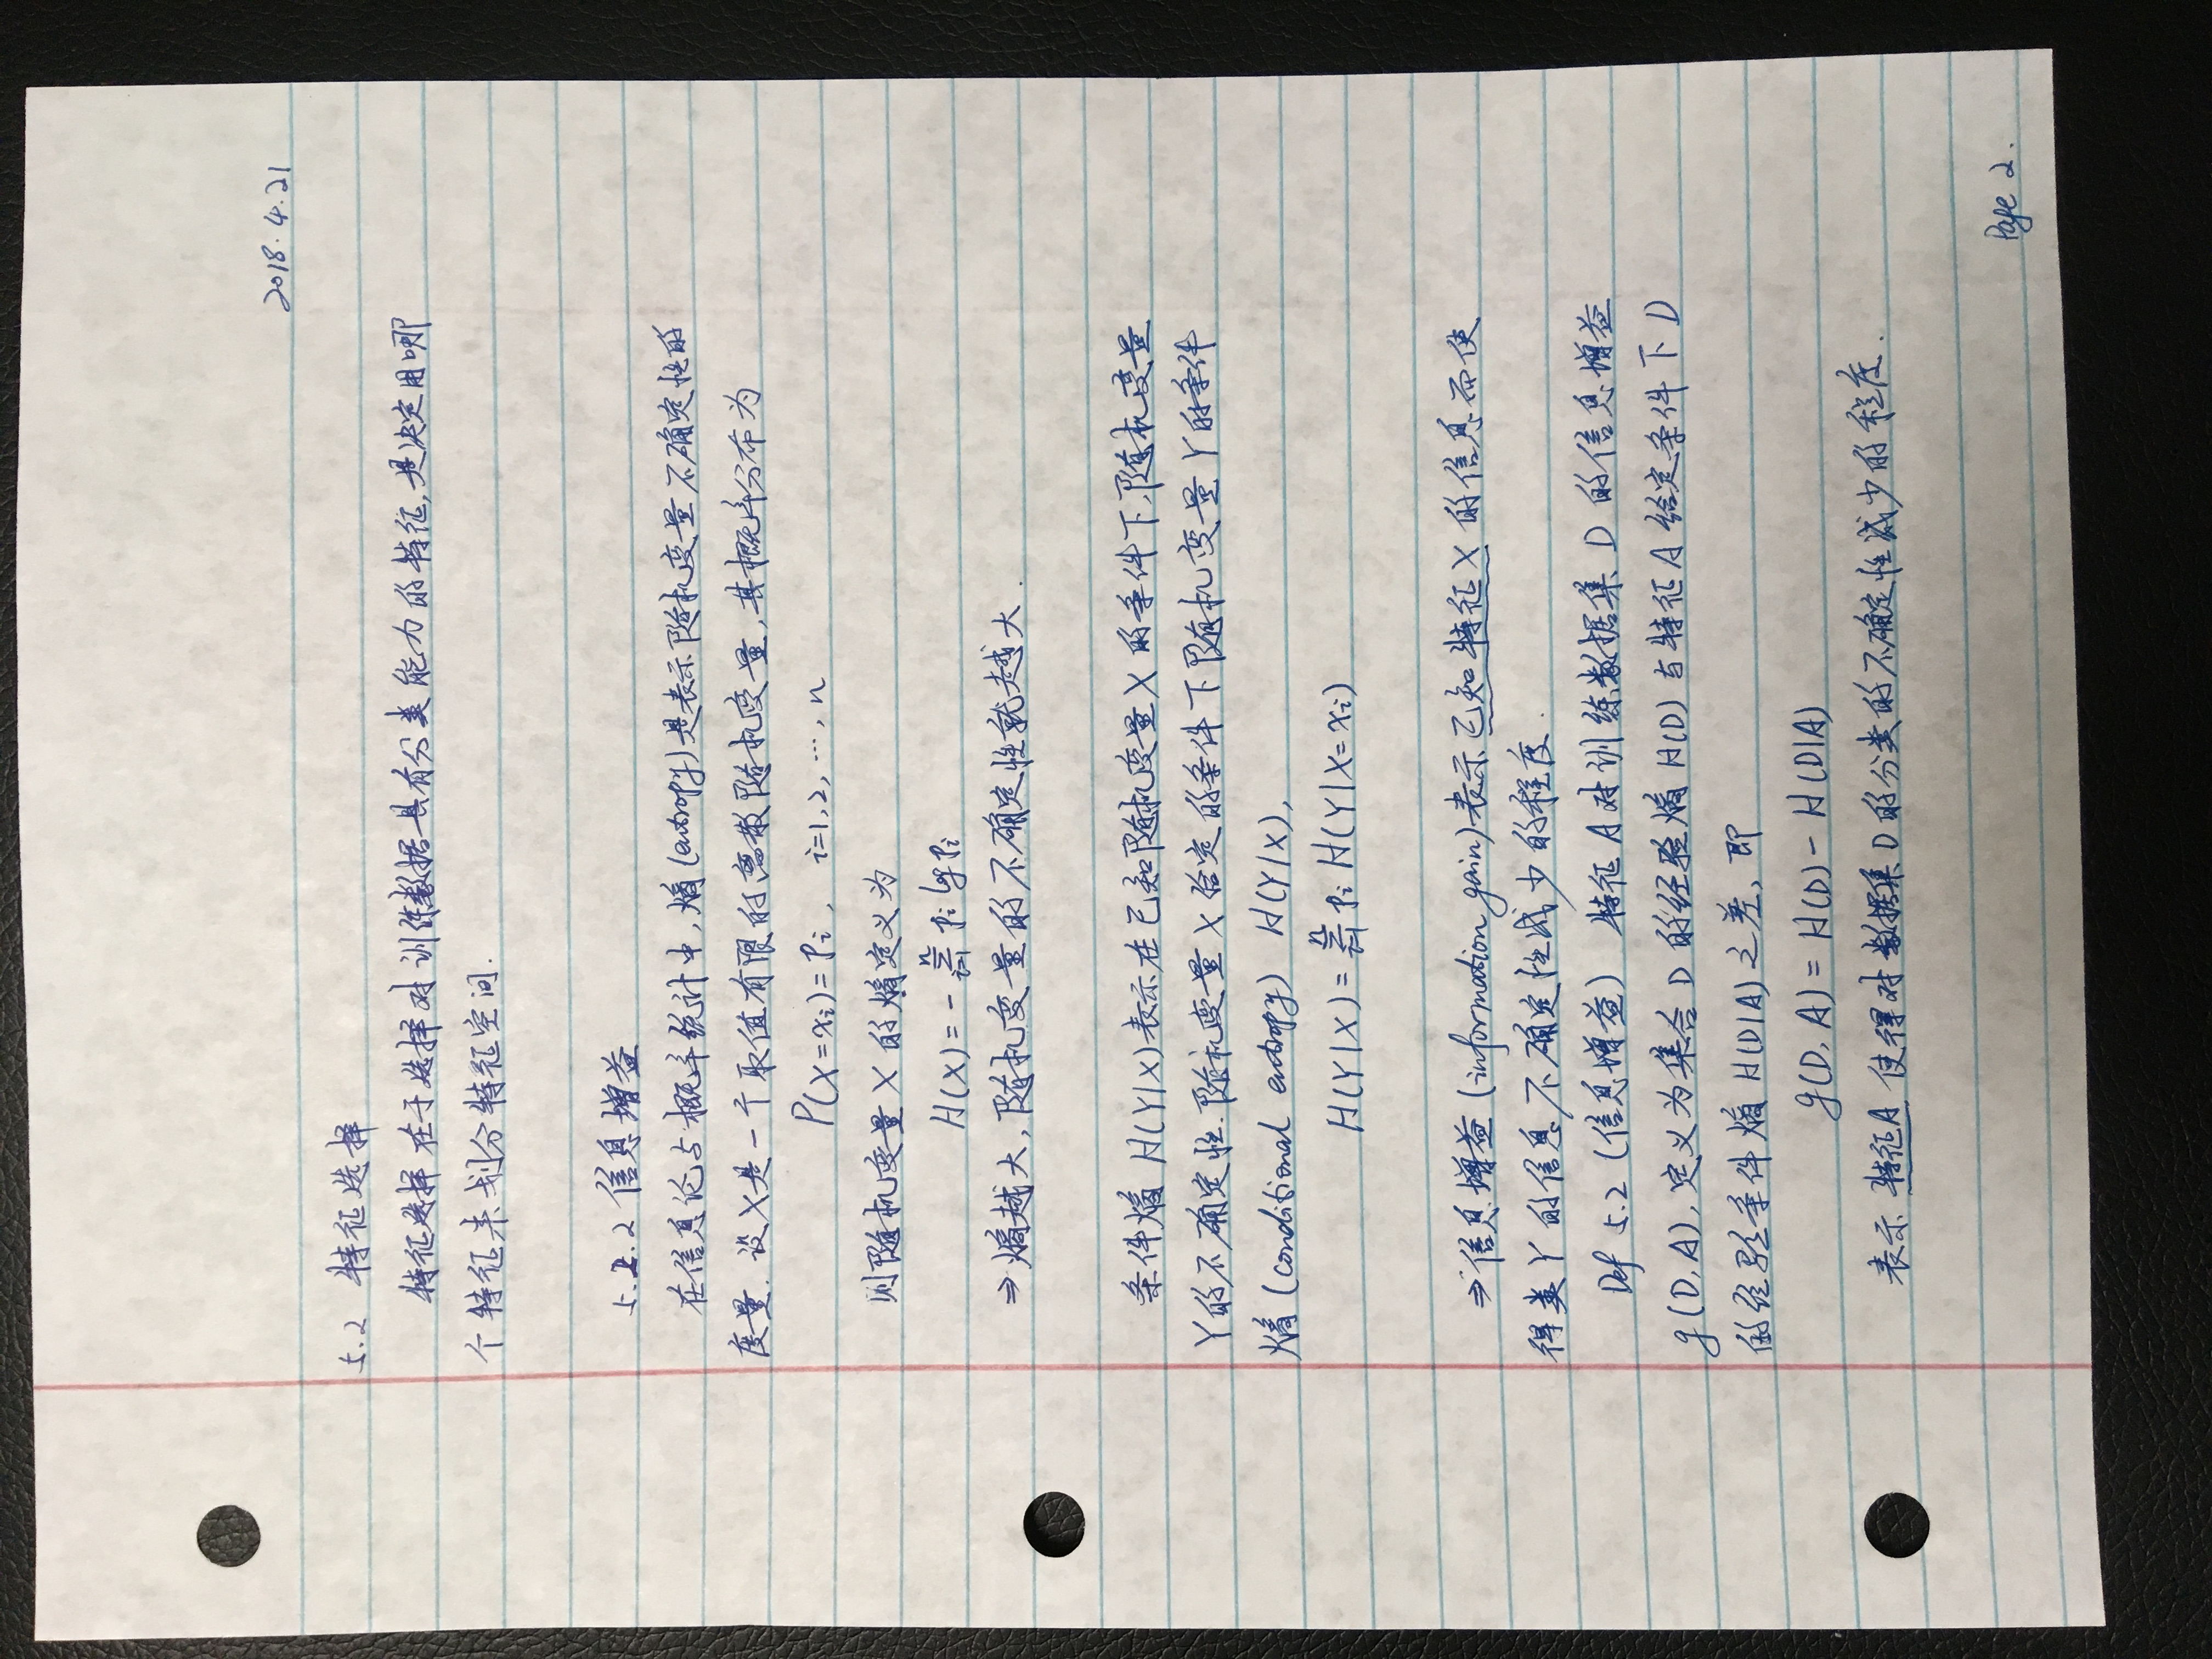 2018.4.21
5.2 特征选择
特征选择在于选择对训练数据具有分类能力的特征,是决定用哪
个特征来划分特征空间.
5.2.2 信息增益
在信息论与概率统计中,熵(entropy)是表示随机变量不确定性的
度量.设X是一个取值有限的离散随机变量,其概率分布为
P(X=xᵢ)=pᵢ, i=1,2,…,n
则随机变量X的熵定义为
H(X)=-∑ⁿᵢ₌₁ pᵢ log pᵢ
⇒熵越大,随机变量的不确定性就越大.
条件熵H(Y|X)表示在已知随机变量X的条件下,随机变量
Y的不确定性.随机变量X给定的条件下随机变量Y的条件
熵(conditional entropy) H(Y|X),
H(Y|X)=∑ⁿᵢ₌₁ pᵢ H(Y|X=xᵢ)
⇒信息增益(information gain)表示已知特征X的信息而使
得类Y的信息不确定性减少的程度.
Def 5.2(信息增益) 特征A对训练数据集D的信息增益
g(D,A),定义为集合D的经验熵H(D)与特征A给定条件下D
的经验条件熵H(D|A)之差,即
g(D,A)=H(D)-H(D|A)
表示特征A使得对数据集D的分类的不确定性减少的程度.
Page 2.